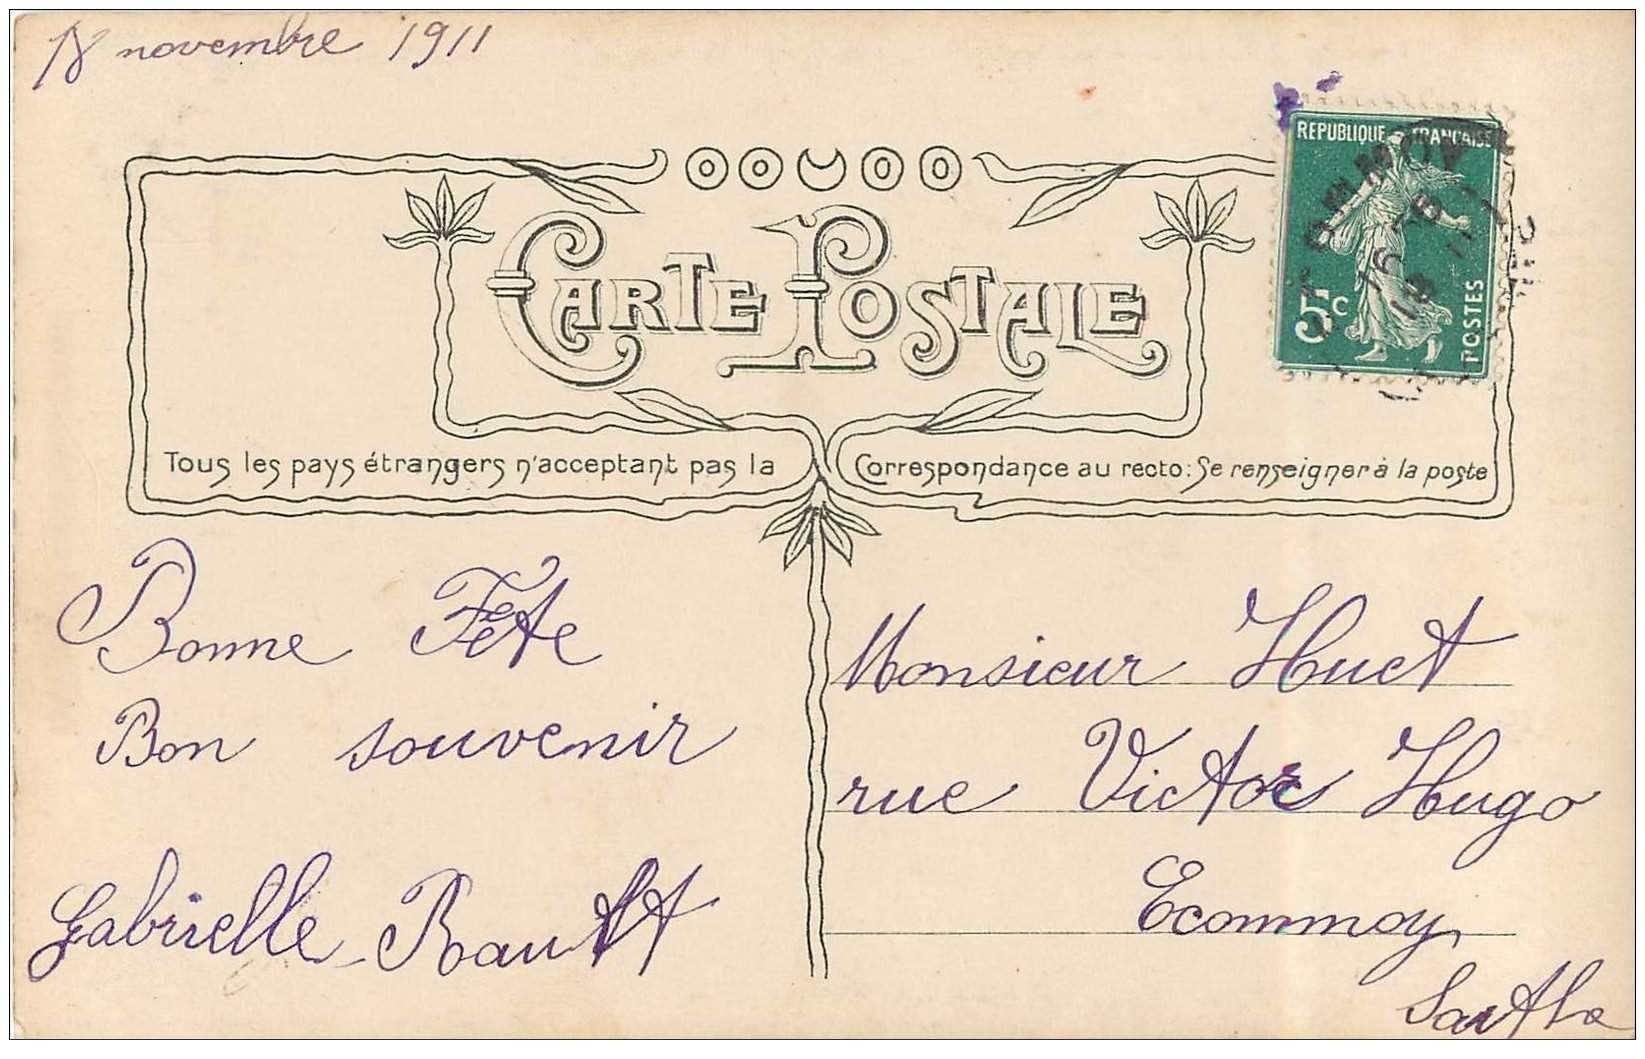 18 novembre 1911
REPUBLIQUE FRANÇAISE
5c
POSTES
CARTE POSTALE
Tous les pays étrangers n'acceptant pas la Correspondance au recto: Se renseigner à la poste
Bonne Fête
Bon souvenir
Gabrielle Rault
Monsieur Huet
rue Victor Hugo
Ecommoy
Sarthe